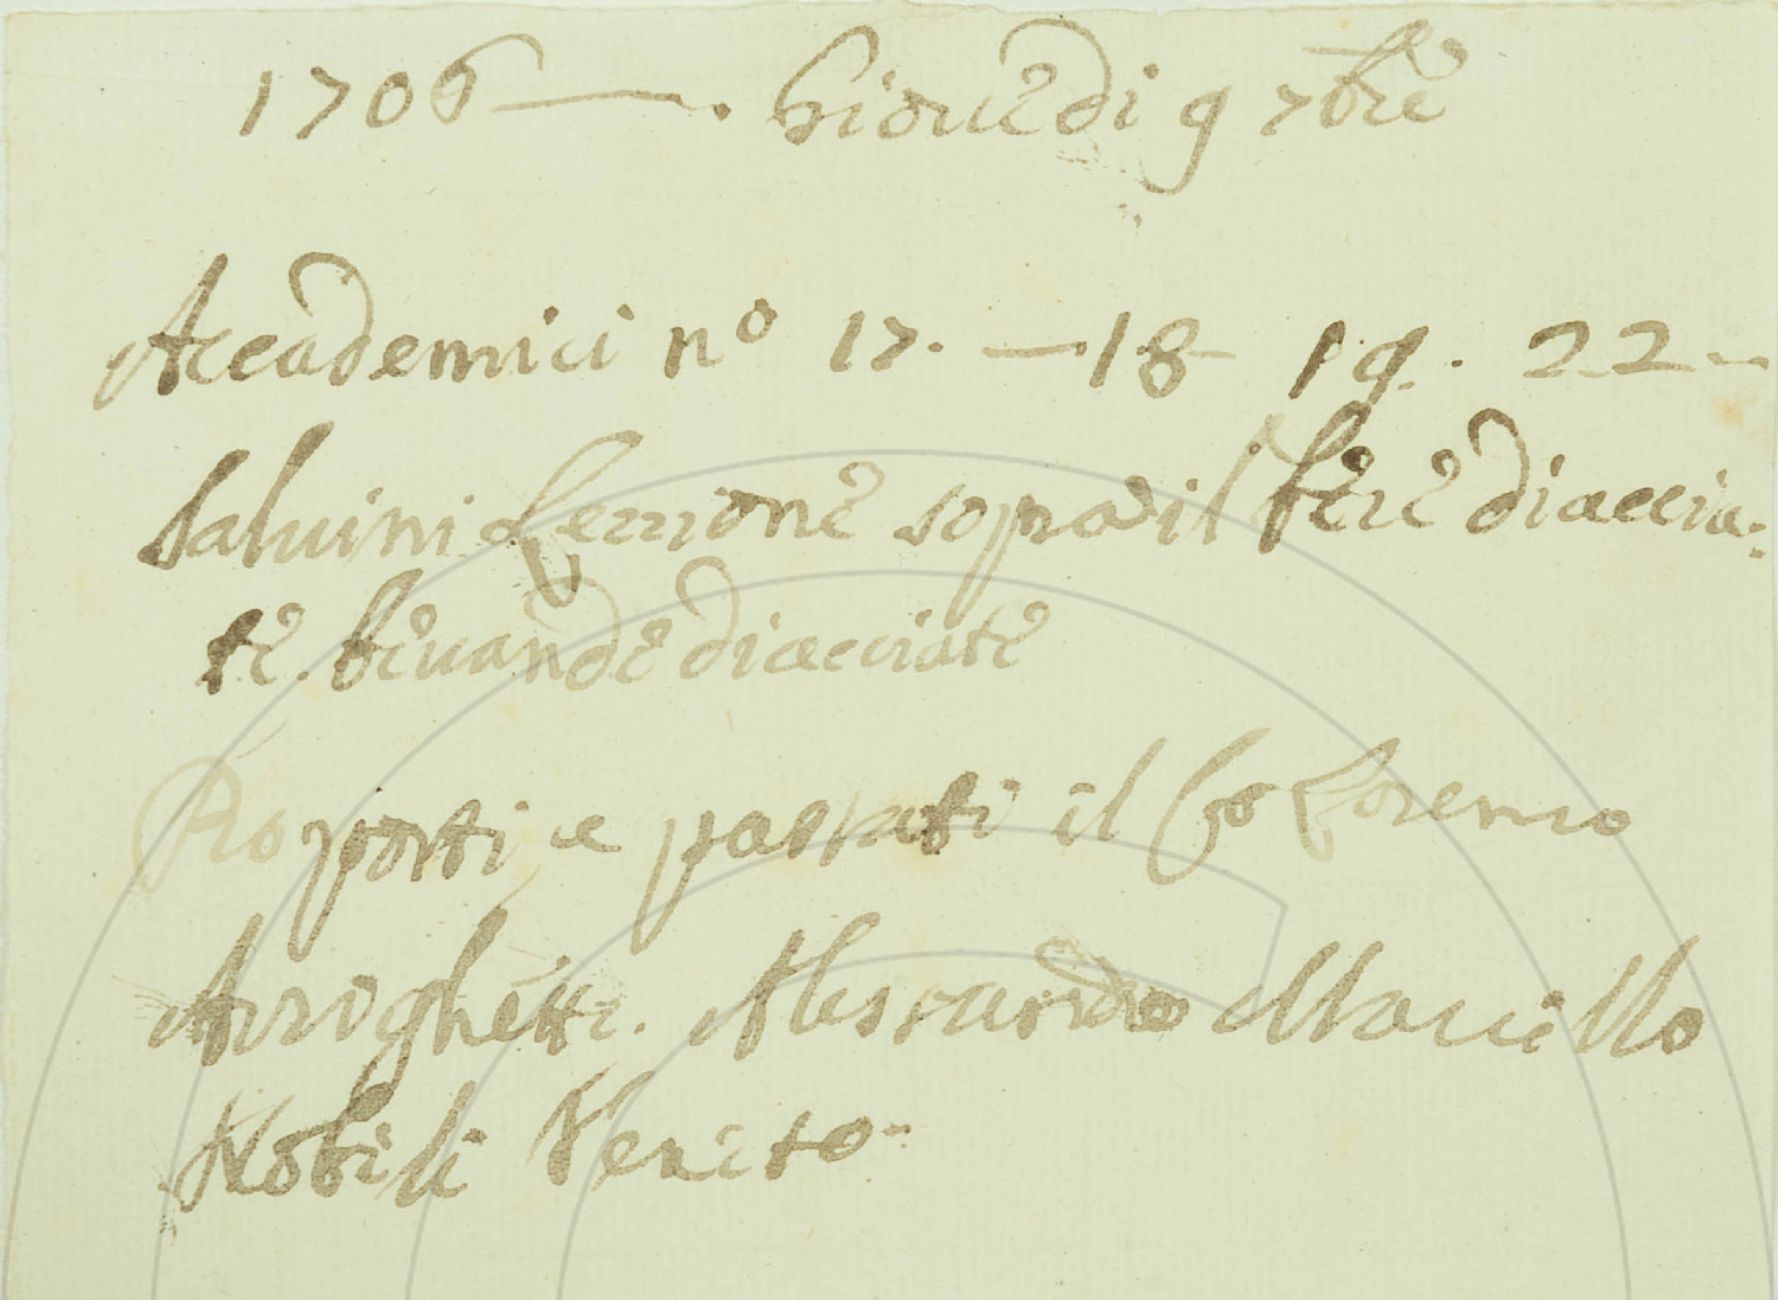 1706 —. Giovedi 9 7bre
Accademici nº 17. — 18 - 19. 22 -
Salvini Lezzione sopra il bere diaccia:
te. bevande diacciate
Proposti e passati il Lorenzo
Arrighetti. Alessandro Marcello
Nobili